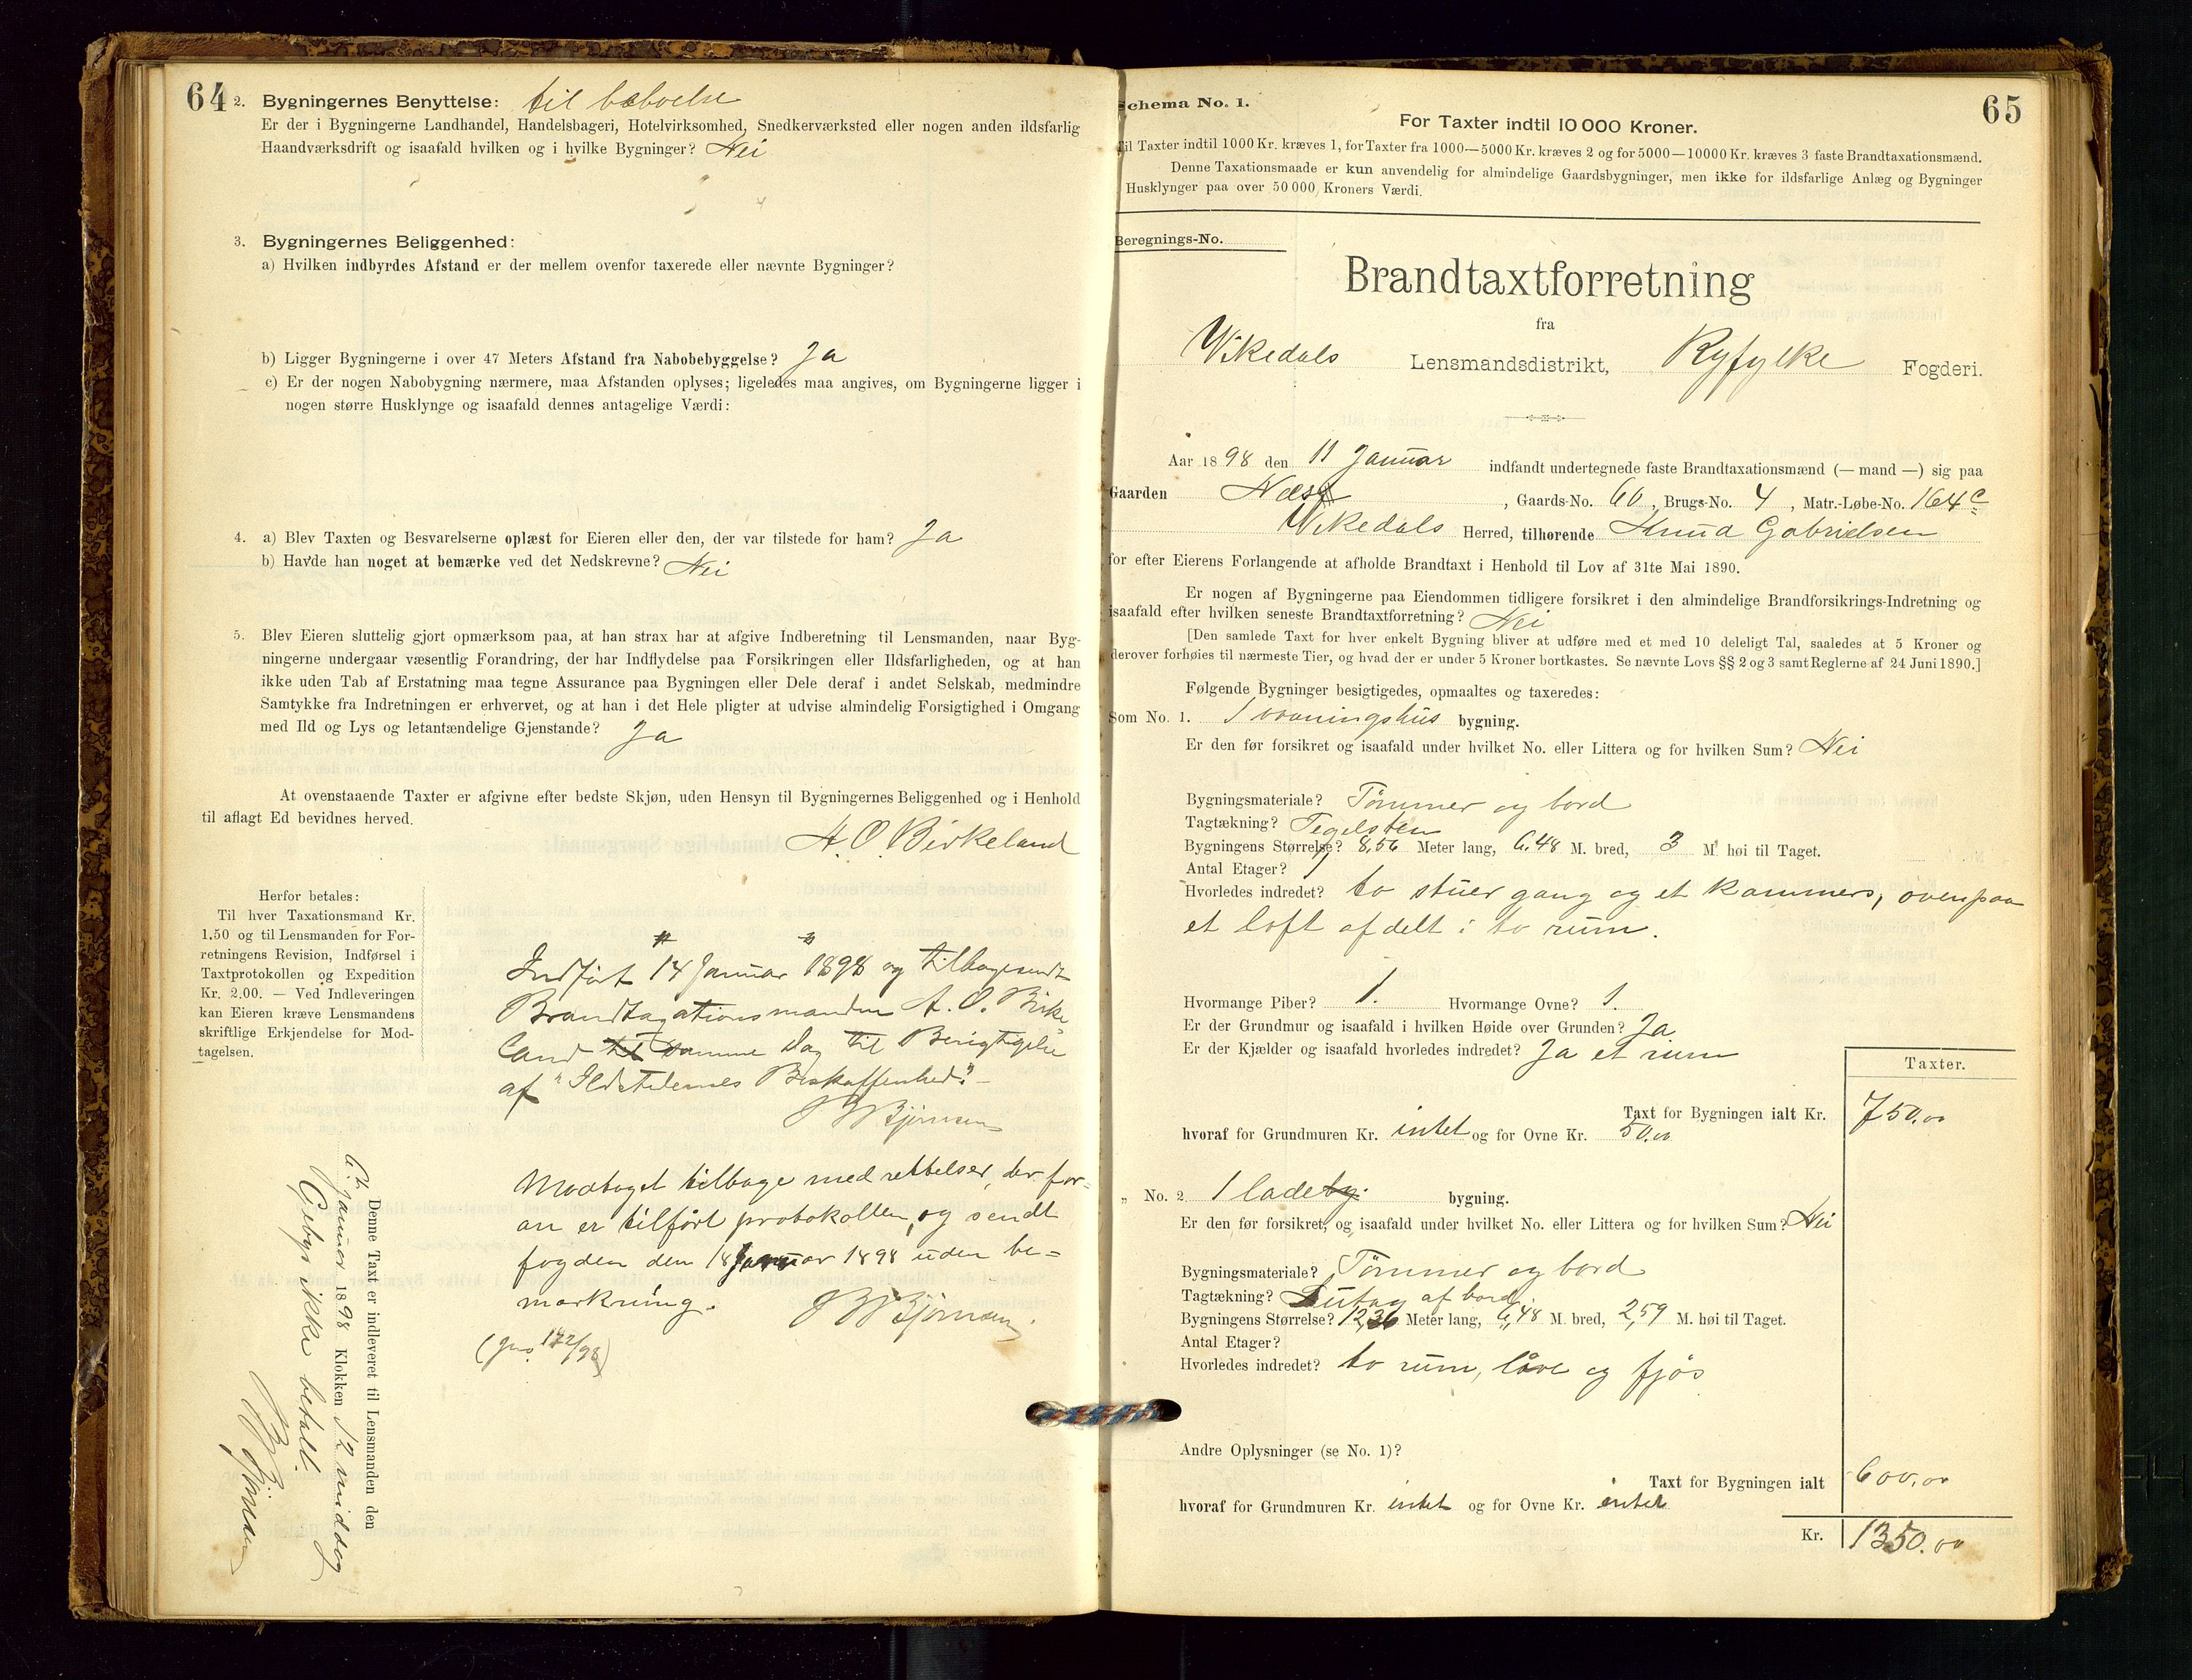 64
2. Bygningernes Benyttelse: til beboelse
Er der i Bygningerne Landhandel, Handelsbageri, Hotelvirksomhed, Snedkerværksted eller nogen anden ildsfarlig
Haandværksdrift og isaafald hvilken og i hvilke Bygninger? Nei
3. Bygningernes Beliggenhed:
a) Hvilken indbyrdes Afstand er der mellem ovenfor taxerede eller nævnte Bygninger?
b) Ligger Bygningerne i over 47 Meters Afstand fra Nabobebyggelse? Ja
c) Er der nogen Nabobygning nærmere, maa Afstanden oplyses; ligeledes maa angives, om Bygningerne ligger i
nogen større Husklynge og isaafald dennes antagelige Værdi:
4. a) Blev Taxten og Besvarelserne oplæst for Eieren eller den, der var tilstede for ham? Ja
b) Havde han noget at bemærke ved det Nedskrevne? Nei
5. Blev Eieren sluttelig gjort opmærksom paa, at han strax har at afgive Indberetning til Lensmanden, naar Byg-
ningerne undergaar væsentlig Forandring, der har Indflydelse paa Forsikringen eller Ildsfarligheden, og at han
ikke uden Tab af Erstatning maa tegne Assurance paa Bygningen eller Dele deraf i andet Selskab, medmindre
Samtykke fra Indretningen er erhvervet, og at han i det Hele pligter at udvise almindelig Forsigtighed i Omgang
med Ild og Lys og letantændelige Gjenstande? Ja
At ovenstaaende Taxter er afgivne efter bedste Skjøn, uden Hensyn til Bygningernes Beliggenhed og i Henhold
til aflagt Ed bevidnes herved.
A. O. Birkeland
Herfor betales:
Til hver Taxationsmand Kr.
1.50 og til Lensmanden for For-
retningens Revision, Indførsel i
Taxtprotokollen og Expedition
Kr. 2.00. — Ved Indleveringen
kan Eieren kræve Lensmandens
skriftlige Erkjendelse for Mod-
tagelsen.
Indført 14 Januar 1898 og tilbagesendt
Brandtaxationsmanden A. O. Birke
land til samme Dag til Berigtigelse
af "Ildstedernes Beskaffenhed".
Bjørnsen
Modtaget tilbage med rettelser, der for-
an er tilført protokollen, og sendt
fogden den 18 Januar 1898 uden be=
mærkning. Bjørnsen
(Jno. 172/98)
Denne Taxt er indleveret til Lensmanden den
Januar 1898 Klokken 12 middag
Gebyr ikke betalt.
Bjørnsen
65
Schema No. 1.
For Taxter indtil 10 000 Kroner.
Til Taxter indtil 1000 Kr. kræves 1, for Taxter fra 1000—5000 Kr. kræves 2 og for 5000—10000 Kr. kræves 3 faste Brandtaxationsmænd.
Denne Taxationsmaade er kun anvendelig for almindelige Gaardsbygninger, men ikke for ildsfarlige Anlæg og Bygninger
Husklynger paa over 50 000 Kroners Værdi.
Beregnings-No.
Brandtaxtforretning
fra
Vikedals Lensmandsdistrikt, Ryfylke Fogderi.
Aar 1898 den 11 Januar indfandt undertegnede faste Brandtaxationsmænd (— mand —) sig paa
Gaarden Næs, Gaards-No. 60, Brugs-No. 4, Matr.-Løbe-No. 164c
Vikedals Herred, tilhørende Knud Gabrielsen
for efter Eierens Forlangende at afholde Brandtaxt i Henhold til Lov af 31te Mai 1890.
Er nogen af Bygningerne paa Eiendommen tidligere forsikret i den almindelige Brandforsikrings-Indretning og
isaafald efter hvilken seneste Brandtaxtforretning? Nei
[Den samlede Taxt for hver enkelt Bygning bliver at udføre med et med 10 deleligt Tal, saaledes at 5 Kroner og
derover forhøies til nærmeste Tier, og hvad der er under 5 Kroner bortkastes. Se nævnte Lovs §§ 2 og 3 samt Reglerne af 24 Juni 1890.]
Følgende Bygninger besigtigedes, opmaaltes og taxeredes:
Som No. 1. 1 vaaningshus bygning.
Er den før forsikret og isaafald under hvilket No. eller Littera og for hvilken Sum? Nei
Bygningsmateriale? Tømmer og bord
Tagtækning? Tegelsten
Bygningens Størrelse? 8,56 Meter lang, 6,48 M. bred, 3 M. høi til Taget.
Antal Etager? 1
Hvorledes indredet? to stuer gang og et kammers, ovenpaa
et loft afdelt i to rum.
Hvormange Piber? 1. Hvormange Ovne? 1.
Er der Grundmur og isaafald i hvilken Høide over Grunden? Ja
Er der Kjælder og isaafald hvorledes indredet? Ja et rum
Taxter.
Taxt for Bygningen ialt Kr. 750.00
hvoraf for Grundmuren Kr. intet og for Ovne Kr. 50.00
„ No. 2 1 ladeby. bygning.
Er den før forsikret, og isaafald under hvilket No. eller Littera og for hvilken Sum? Nei
Bygningsmateriale? Tømmer og bord
Tagtækning? Sutag af bord
Bygningens Størrelse? 12,36 Meter lang, 6,48 M. bred, 2,59 M. høi til Taget.
Antal Etager?
Hvorledes indredet? to rum, låve og fjøs
Andre Oplysninger (se No. 1)?
Taxt for Bygningen ialt 600,00
hvoraf for Grundmuren Kr. intet og for Ovne Kr. intet
Kr. 1350.00